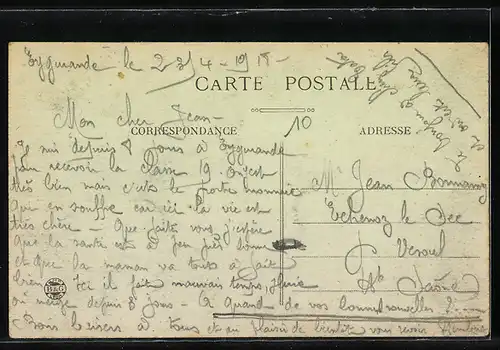 Eygurande le 23/4-1918-
CARTE POSTALE
Mon cher Jean-
CORRESPONDANCE
10
ADRESSE
suis depuis 8 jours à Eygurande
pour recevoir la classe 19. On est
très bien mais c'est le porte monnaie
qui en souffre car ici la vie est
très chère - Que fait vous j'espère
que la santé est à peu près bonne
et que la maman va tout à fait
bien. Ici il fait mauvais temps, pluie
ou neige depuis 8 jours - A quand de vos bonnes nouvelles ?
Bons baisers à tous et au plaisir de bientôt vous revoir
Mr Jean
Echenoz le Sec
Vesoul
Hte Saône
B&G